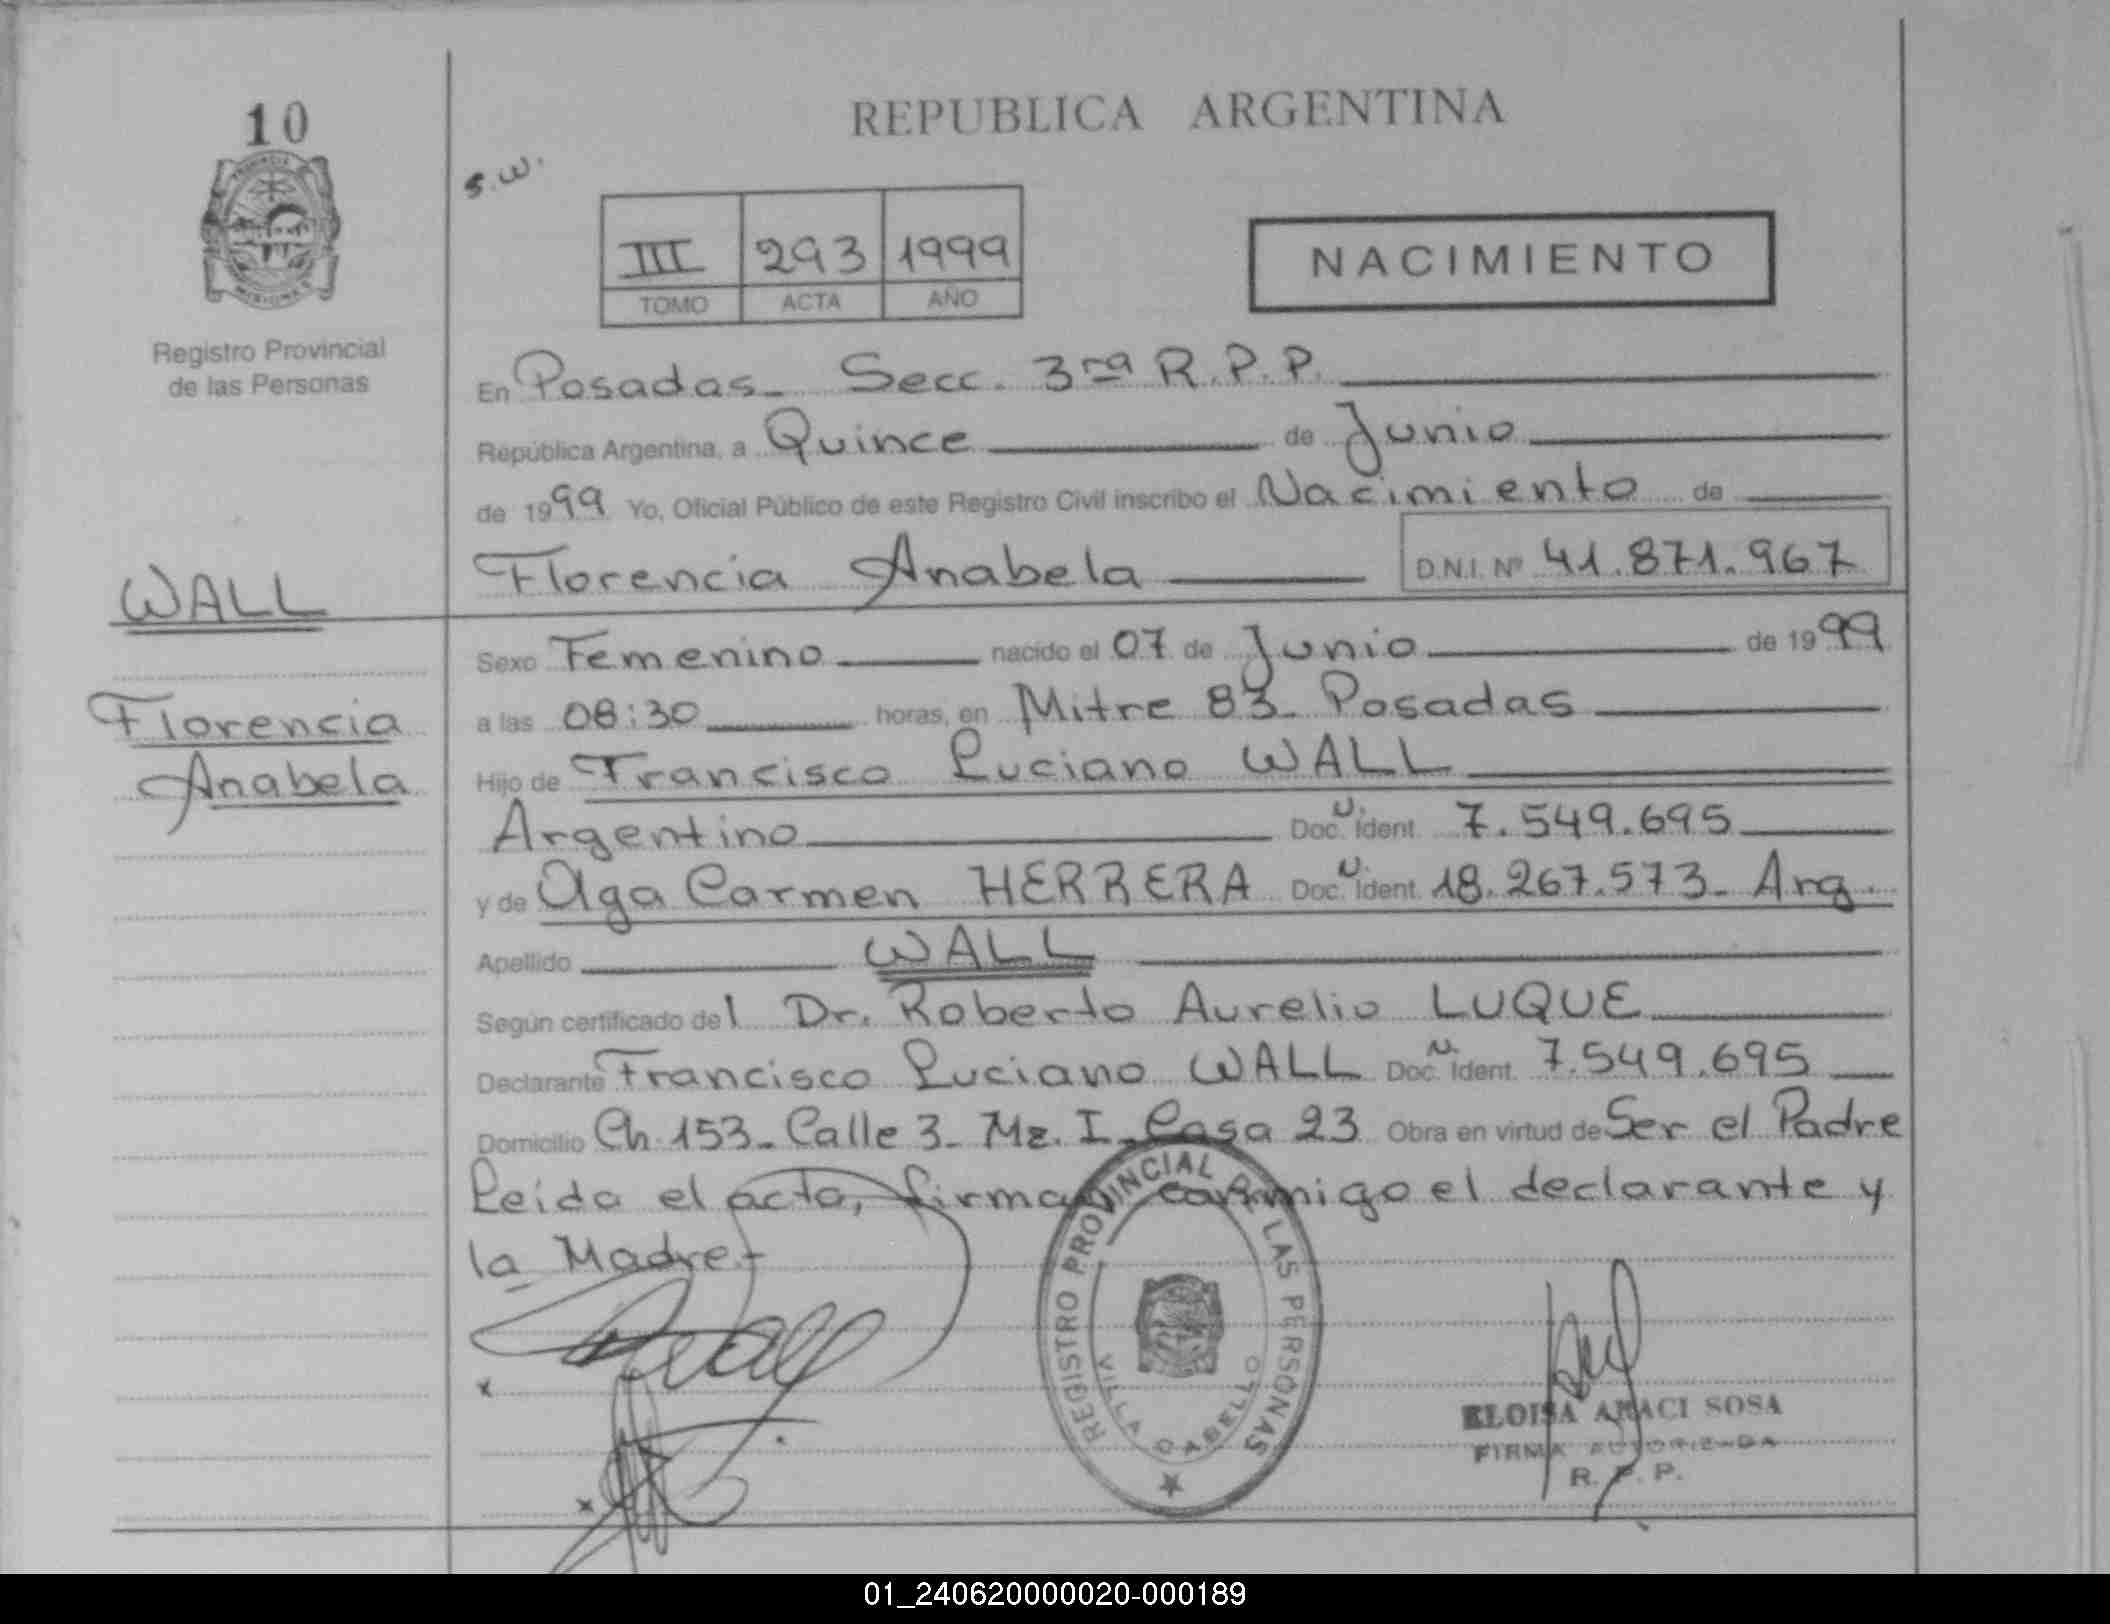 10
REPUBLICA ARGENTINA
s.w.
III 293 1999
TOMO ACTA AÑO
NACIMIENTO
Registro Provincial
de las Personas
En Posadas- Secc. 3ra R.P.P.
República Argentina, a Quince de Junio
de 1999 Yo, Oficial Público de este Registro Civil inscribo el Nacimiento de
Florencia Anabela D.N.I. Nº 41.871.967
WALL
Florencia
Anabela
Sexo Femenino nacido el 07 de Junio de 1999
a las 08:30 horas, en Mitre 83- Posadas
Hijo de Francisco Luciano WALL
Argentino Doc. U. Ident. 7.549.695
y de Olga Carmen HERRERA Doc. U. Ident. 18.267.573- Arg.
Apellido WALL
Según certificado del Dr. Roberto Aurelio LUQUE
Declarante Francisco Luciano WALL Doc. N. Ident. 7.549.695
Domicilio Ch. 153- Calle 3- Mz. I- Casa 23 Obra en virtud de Ser el Padre
Leida el acta, firman conmigo el declarante y
la Madre-
REGISTRO PROVINCIAL DE LAS PERSONAS
VILLA CABELLO
ELOISA ARACI SOSA
FIRMA AUTORIZADA
R. P. P.
01_240620000020-000189